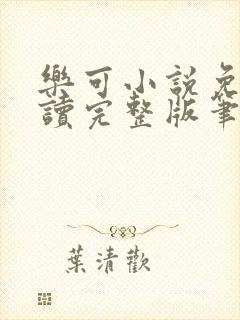 樂可小說免
讀完整版筆
葉清歡